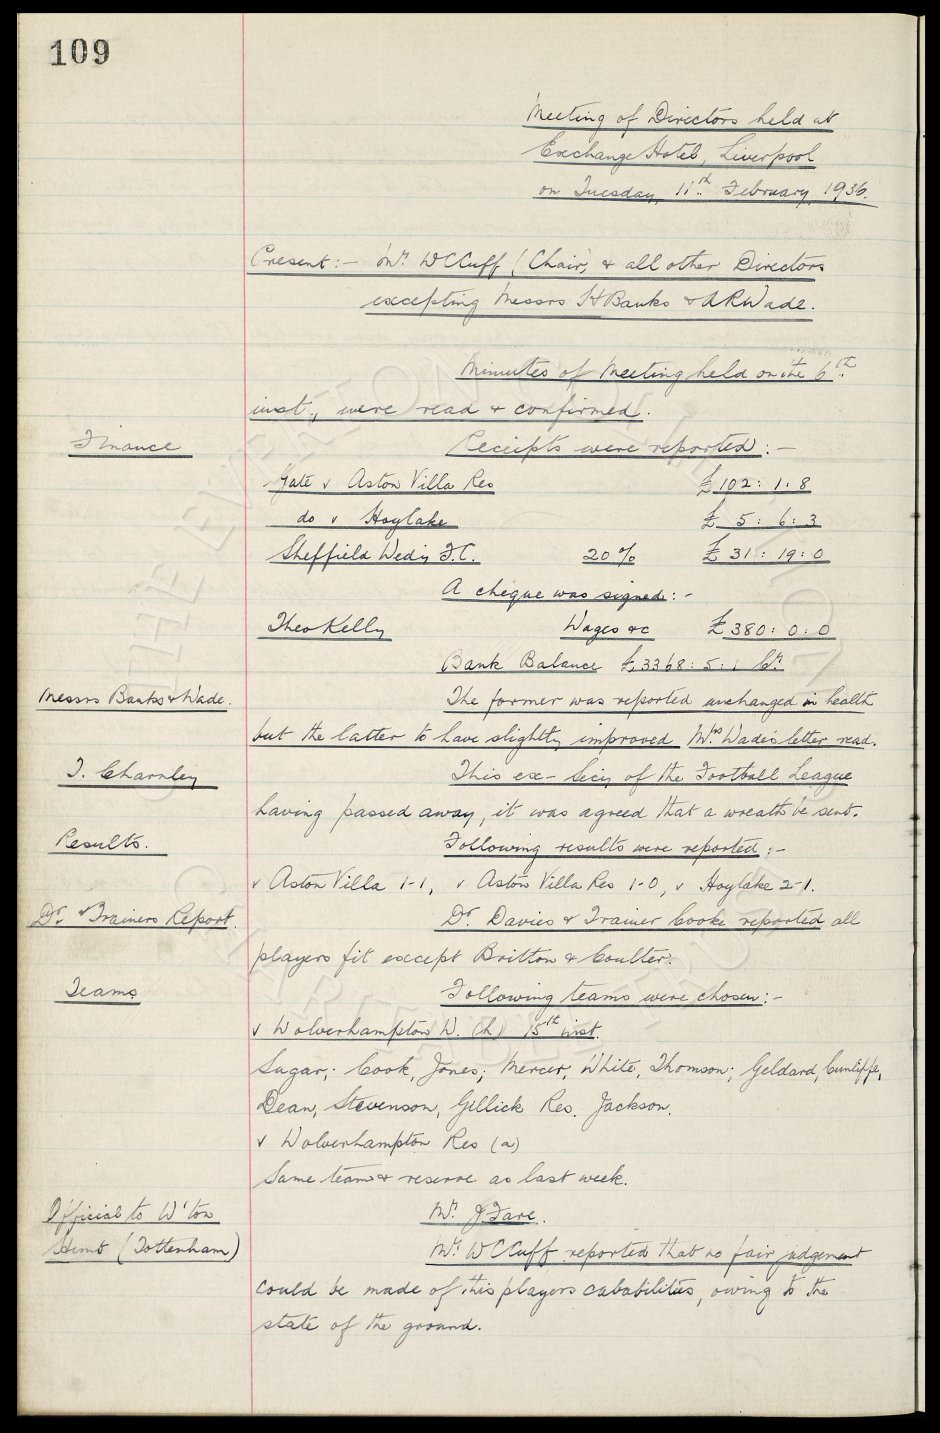 109
Meeting of Directors held at
Exchange Hotel, Liverpool
on Tuesday, 11th February, 1936.
Present:- Mr. W C Cuff (Chair) & all other Directors
excepting Messrs H Banks & A R Wade.
Minutes of Meeting held on the 6th
inst., were read & confirmed.
Finance Receipts were reported:-
Gate v Aston Villa Res £102:1:8
do v Hoylake £5:6:3
Sheffield Wedy F.C. 20% £31:19:0
A cheque was signed:-
Theo Kelly Wages &c £380:0:0
Bank Balance £3368:5:1 Cr.
Messrs Banks & Wade. The former was reported unchanged in health
but the latter to have slightly improved Mrs. Wade's letter read.
T. Charnley This ex-Secy of the Football League
having passed away, it was agreed that a wreath be sent.
Results. Following results were reported:-
v Aston Villa 1-1, v Aston Villa Res 1-0, v Hoylake 2-1.
Dr. & Trainers Report. Dr. Davies & Trainer Cooke reported all
players fit except Britton & Coulter.
Teams Following teams were chosen:-
v Wolverhampton W. (h) 15th inst.
Sagar; Cook, Jones; Mercer, White, Thomson; Geldard, Cunliffe,
Dean, Stevenson, Gillick Res. Jackson.
v Wolverhampton Res (a)
Same team & reserve as last week.
Official to W'ton Mr. J. Fare.
Hunt (Tottenham) Mr. W C Cuff reported that no fair judgement
could be made of this players cababilities, owing to the
state of the ground.
THE EVERTON COLLECTION
CHARITABLE TRUST